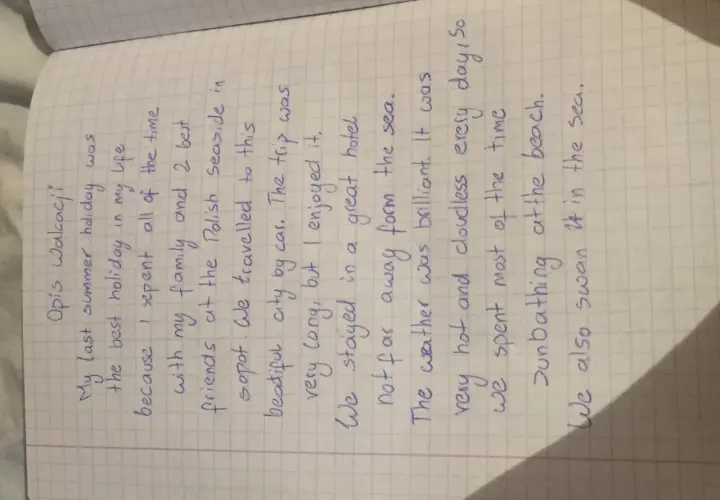 Opis wakacji
My last summer holiday was
the best holiday in my life
because I spent all of the time
with my family and 2 best
friends at the Polish seaside in
sopot. We travelled to this
beatiful city by car. The trip was
very long, but I enjoyed it.
We stayed in a great hotel
not far away form the sea.
The weather was brilliant. It was
very hot and cloudless every day, so
we spent most of the time
sunbathing at the beach.
We also swan in the sea.